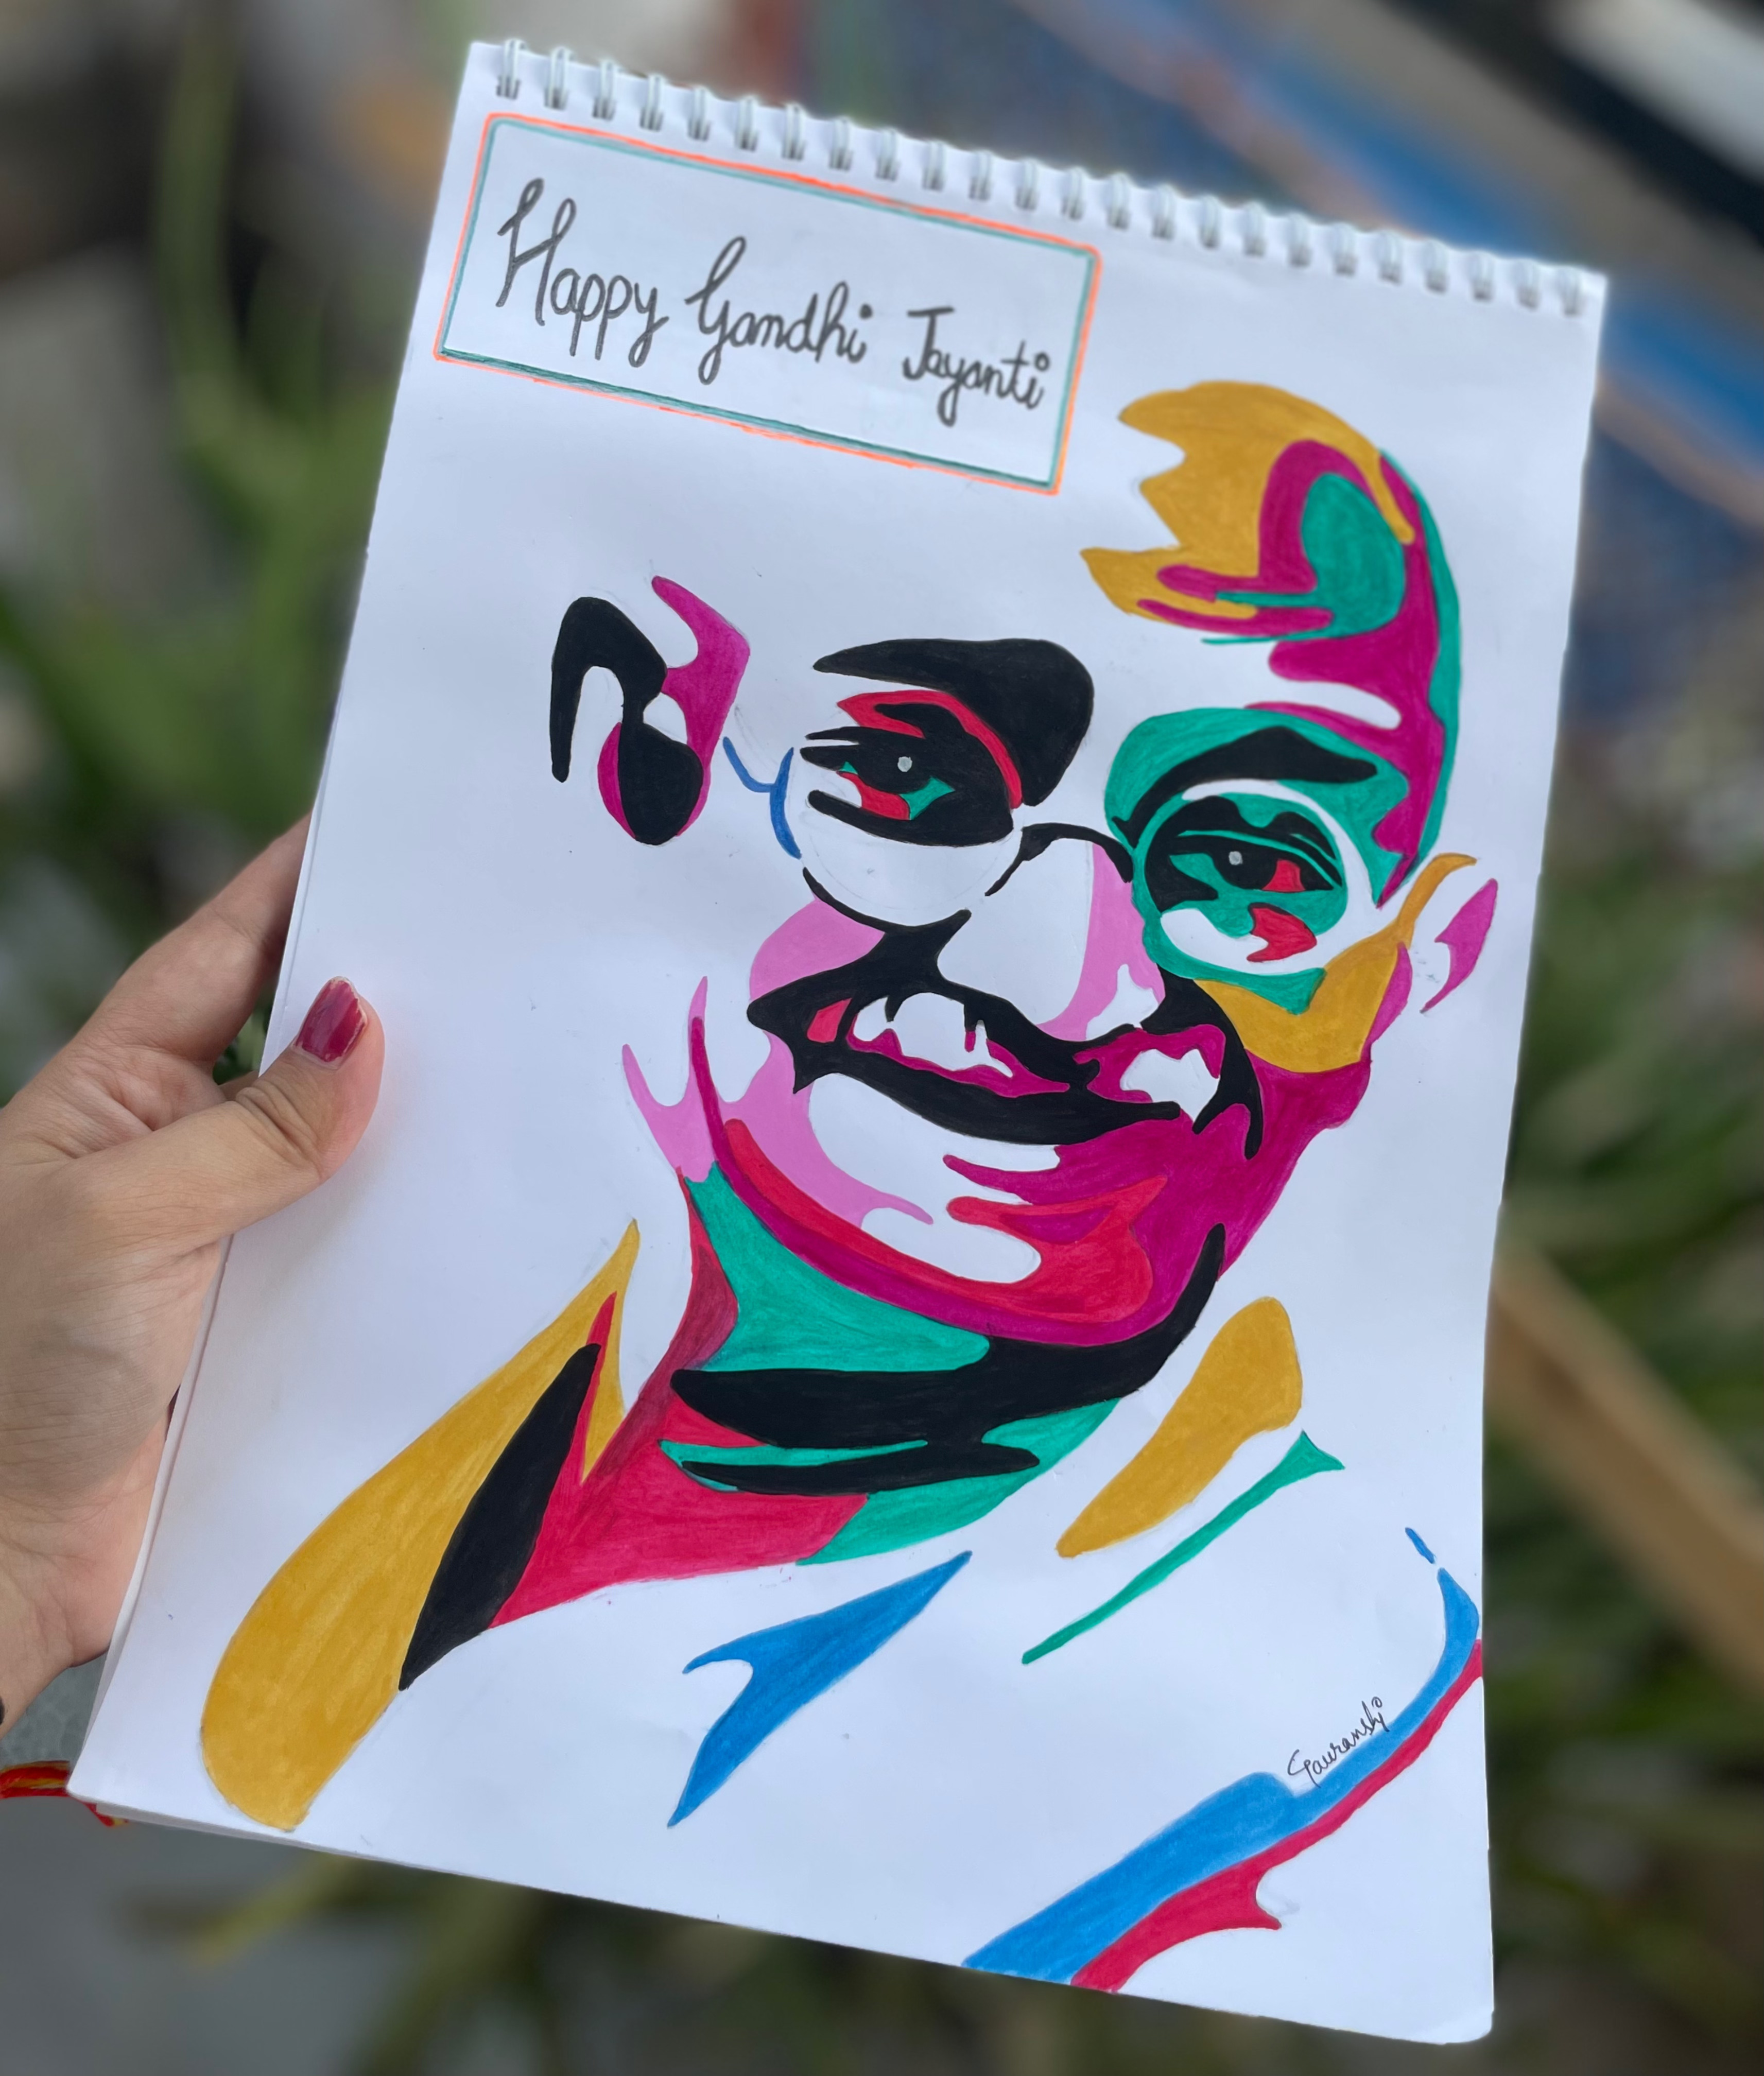 Happy Gandhi Jayanti
Gauranshi